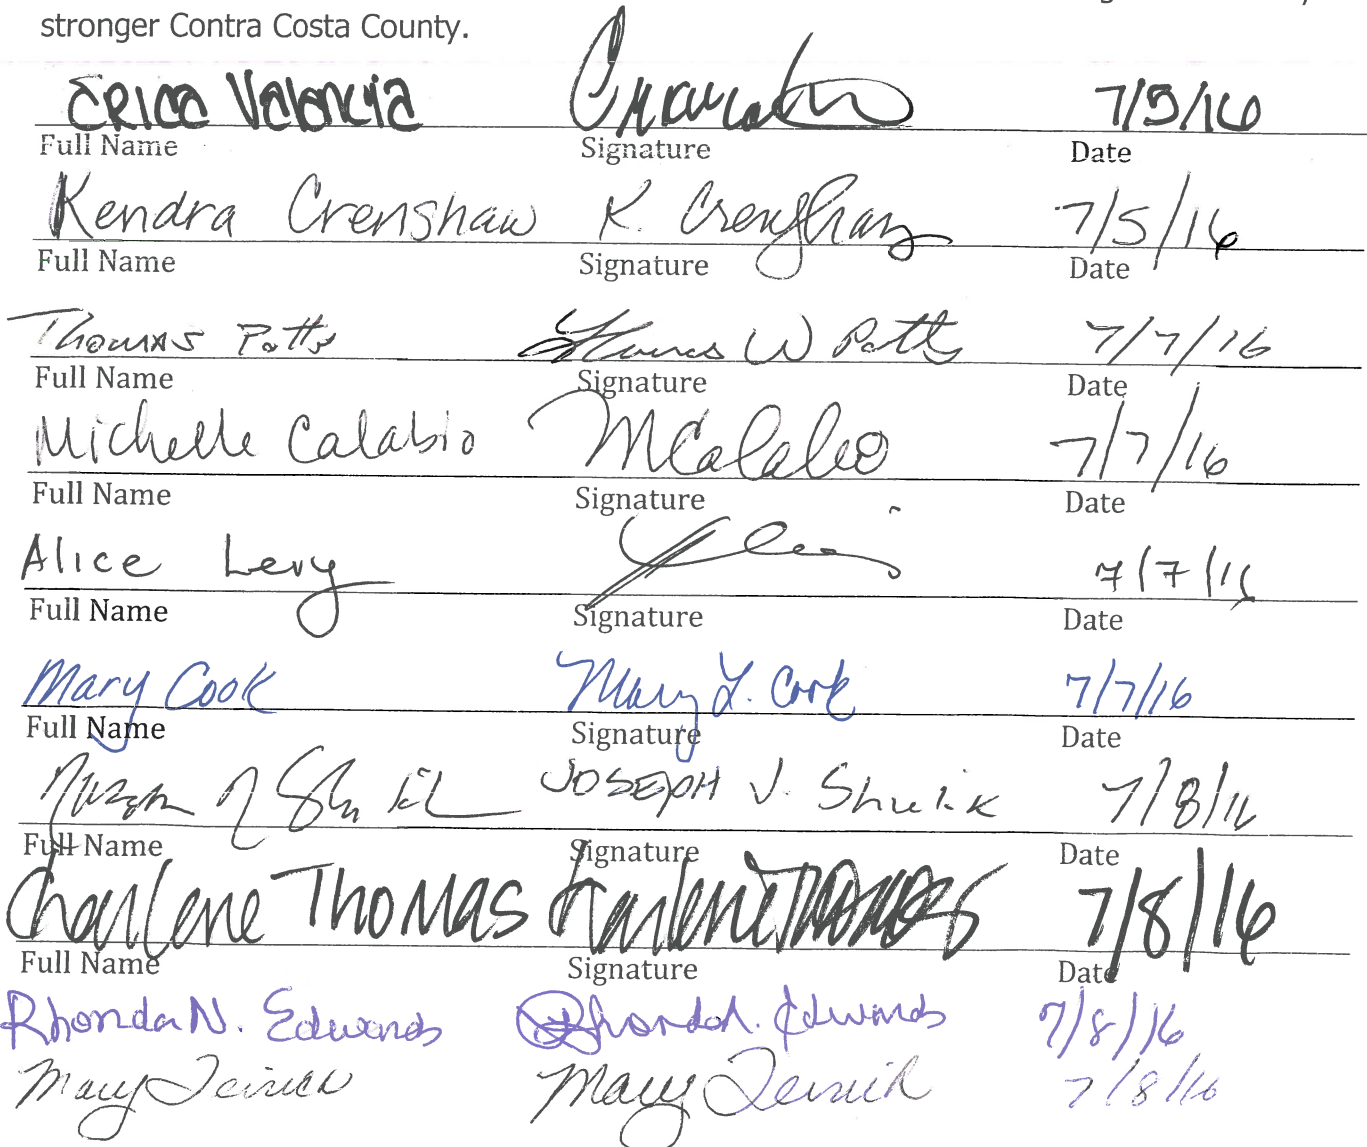 stronger Contra Costa County.
Erica Valencia 7/5/16
Full Name Signature Date
Kendra Crenshaw K. Crenshaw 7/5/16
Full Name Signature Date
Thomas Potts Thomas W Potts 7/7/16
Full Name Signature Date
Michelle Calabio MCalabio 7/7/16
Full Name Signature Date
Alice Levy 7/7/16
Full Name Signature Date
Mary Cook Mary L. Cook 7/7/16
Full Name Signature Date
JOSEPH J. Shulik 7/8/16
Full Name Signature Date
Charlene Thomas Charlene Thomas 7/8/16
Full Name Signature Date
Rhonda N. Edwards Rhonda N. Edwards 7/8/16
Mary Mary 7/8/16